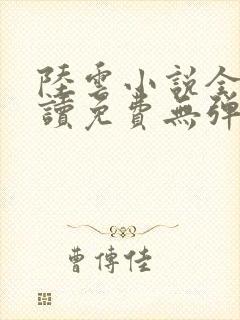 陸雲小説全
讀免費無彈
曹傳佳